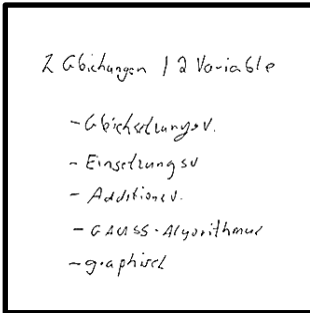 2 Gleichungen / 2 Variable
- Gleichsetzungsv.
- Einsetzungsv
- Additionsv.
- GAUSS-Algorithmus
- graphisch